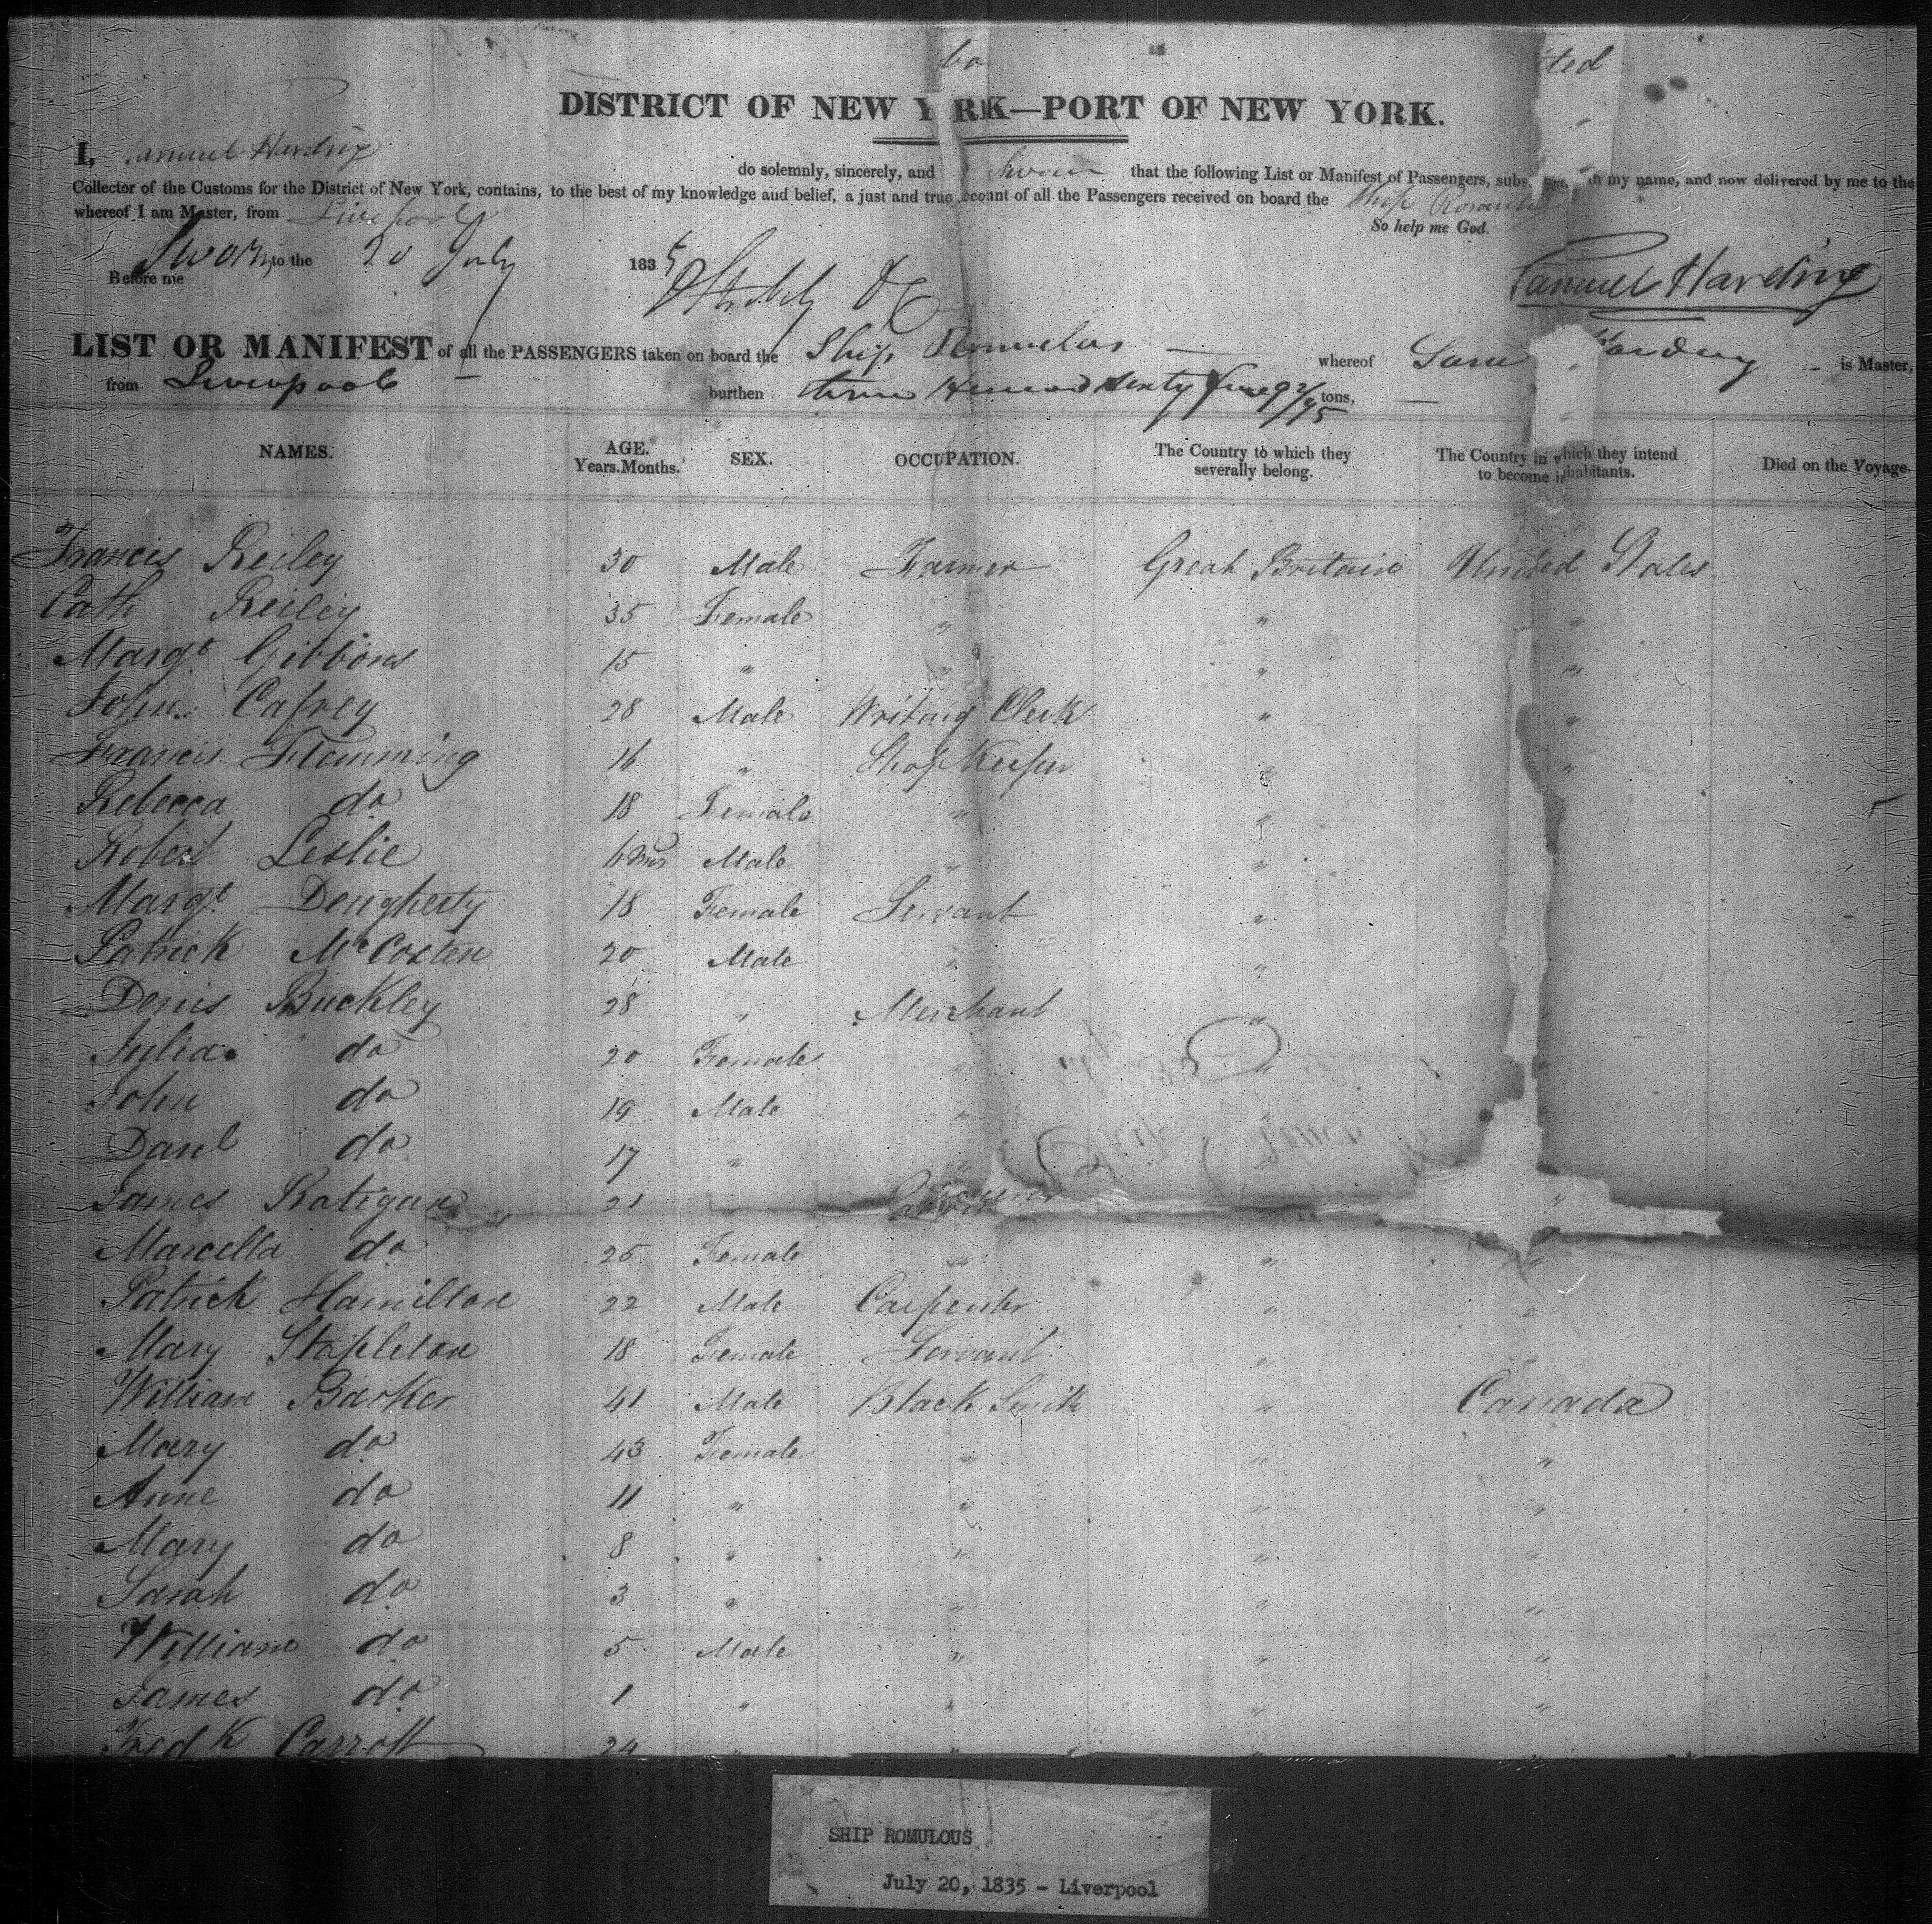 DISTRICT OF NEW Y RK—PORT OF NEW YORK.
I, Samuel Harding do solemnly, sincerely, and swear that the following List or Manifest of Passengers, subs my name, and now delivered by me to the
Collector of the Customs for the District of New York, contains, to the best of my knowledge and belief, a just and true account of all the Passengers received on board the Ship Romulus
whereof I am Master, from Liverpool
So help me God.
Sworn to the 20 July 1835
Before me
Samuel Harding
LIST OR MANIFEST of all the PASSENGERS taken on board the Ship Romulus — whereof Sam Harding is Master,
from Liverpool — burthen tons, —
NAMES. AGE. Years. Months. SEX. OCCUPATION. The Country to which they severally belong. The Country in which they intend to become inhabitants. Died on the Voyage.
Francis Reiley 30 Male Farmer Great Britain United States
Cath Reiley 35 Female " " "
Margt Gibbons 15 " " " "
John Cafrey 28 Male Writing Clerk " "
Francis Flemming 16 " Shop Keeper " "
Rebecca do 18 Female " "
Robert Leslie 6 Ms Male " "
Margt Dougherty 18 Female Servant "
Patrick McCosten 20 Male " "
Denis Buckley 28 " Merchant "
Julia do 20 Female " "
John do 19 Male " "
Danl do 17 " " "
James Ratigan 21 " "
Marcella do 25 Female " " "
Patrick Hamilton 22 Male Carpenter " "
Mary Stapleton 18 Female Servant " "
William Barker 41 Male Black Smith " Canada
Mary do 43 Female " " "
Anne do 11 " " " "
Mary do 8 " " " "
Sarah do 3 " " " "
William do 5 Male " " "
James do 1 " " " "
Fredk Carrott 24 " " " "
SHIP ROMULOUS
July 20, 1835 - Liverpool